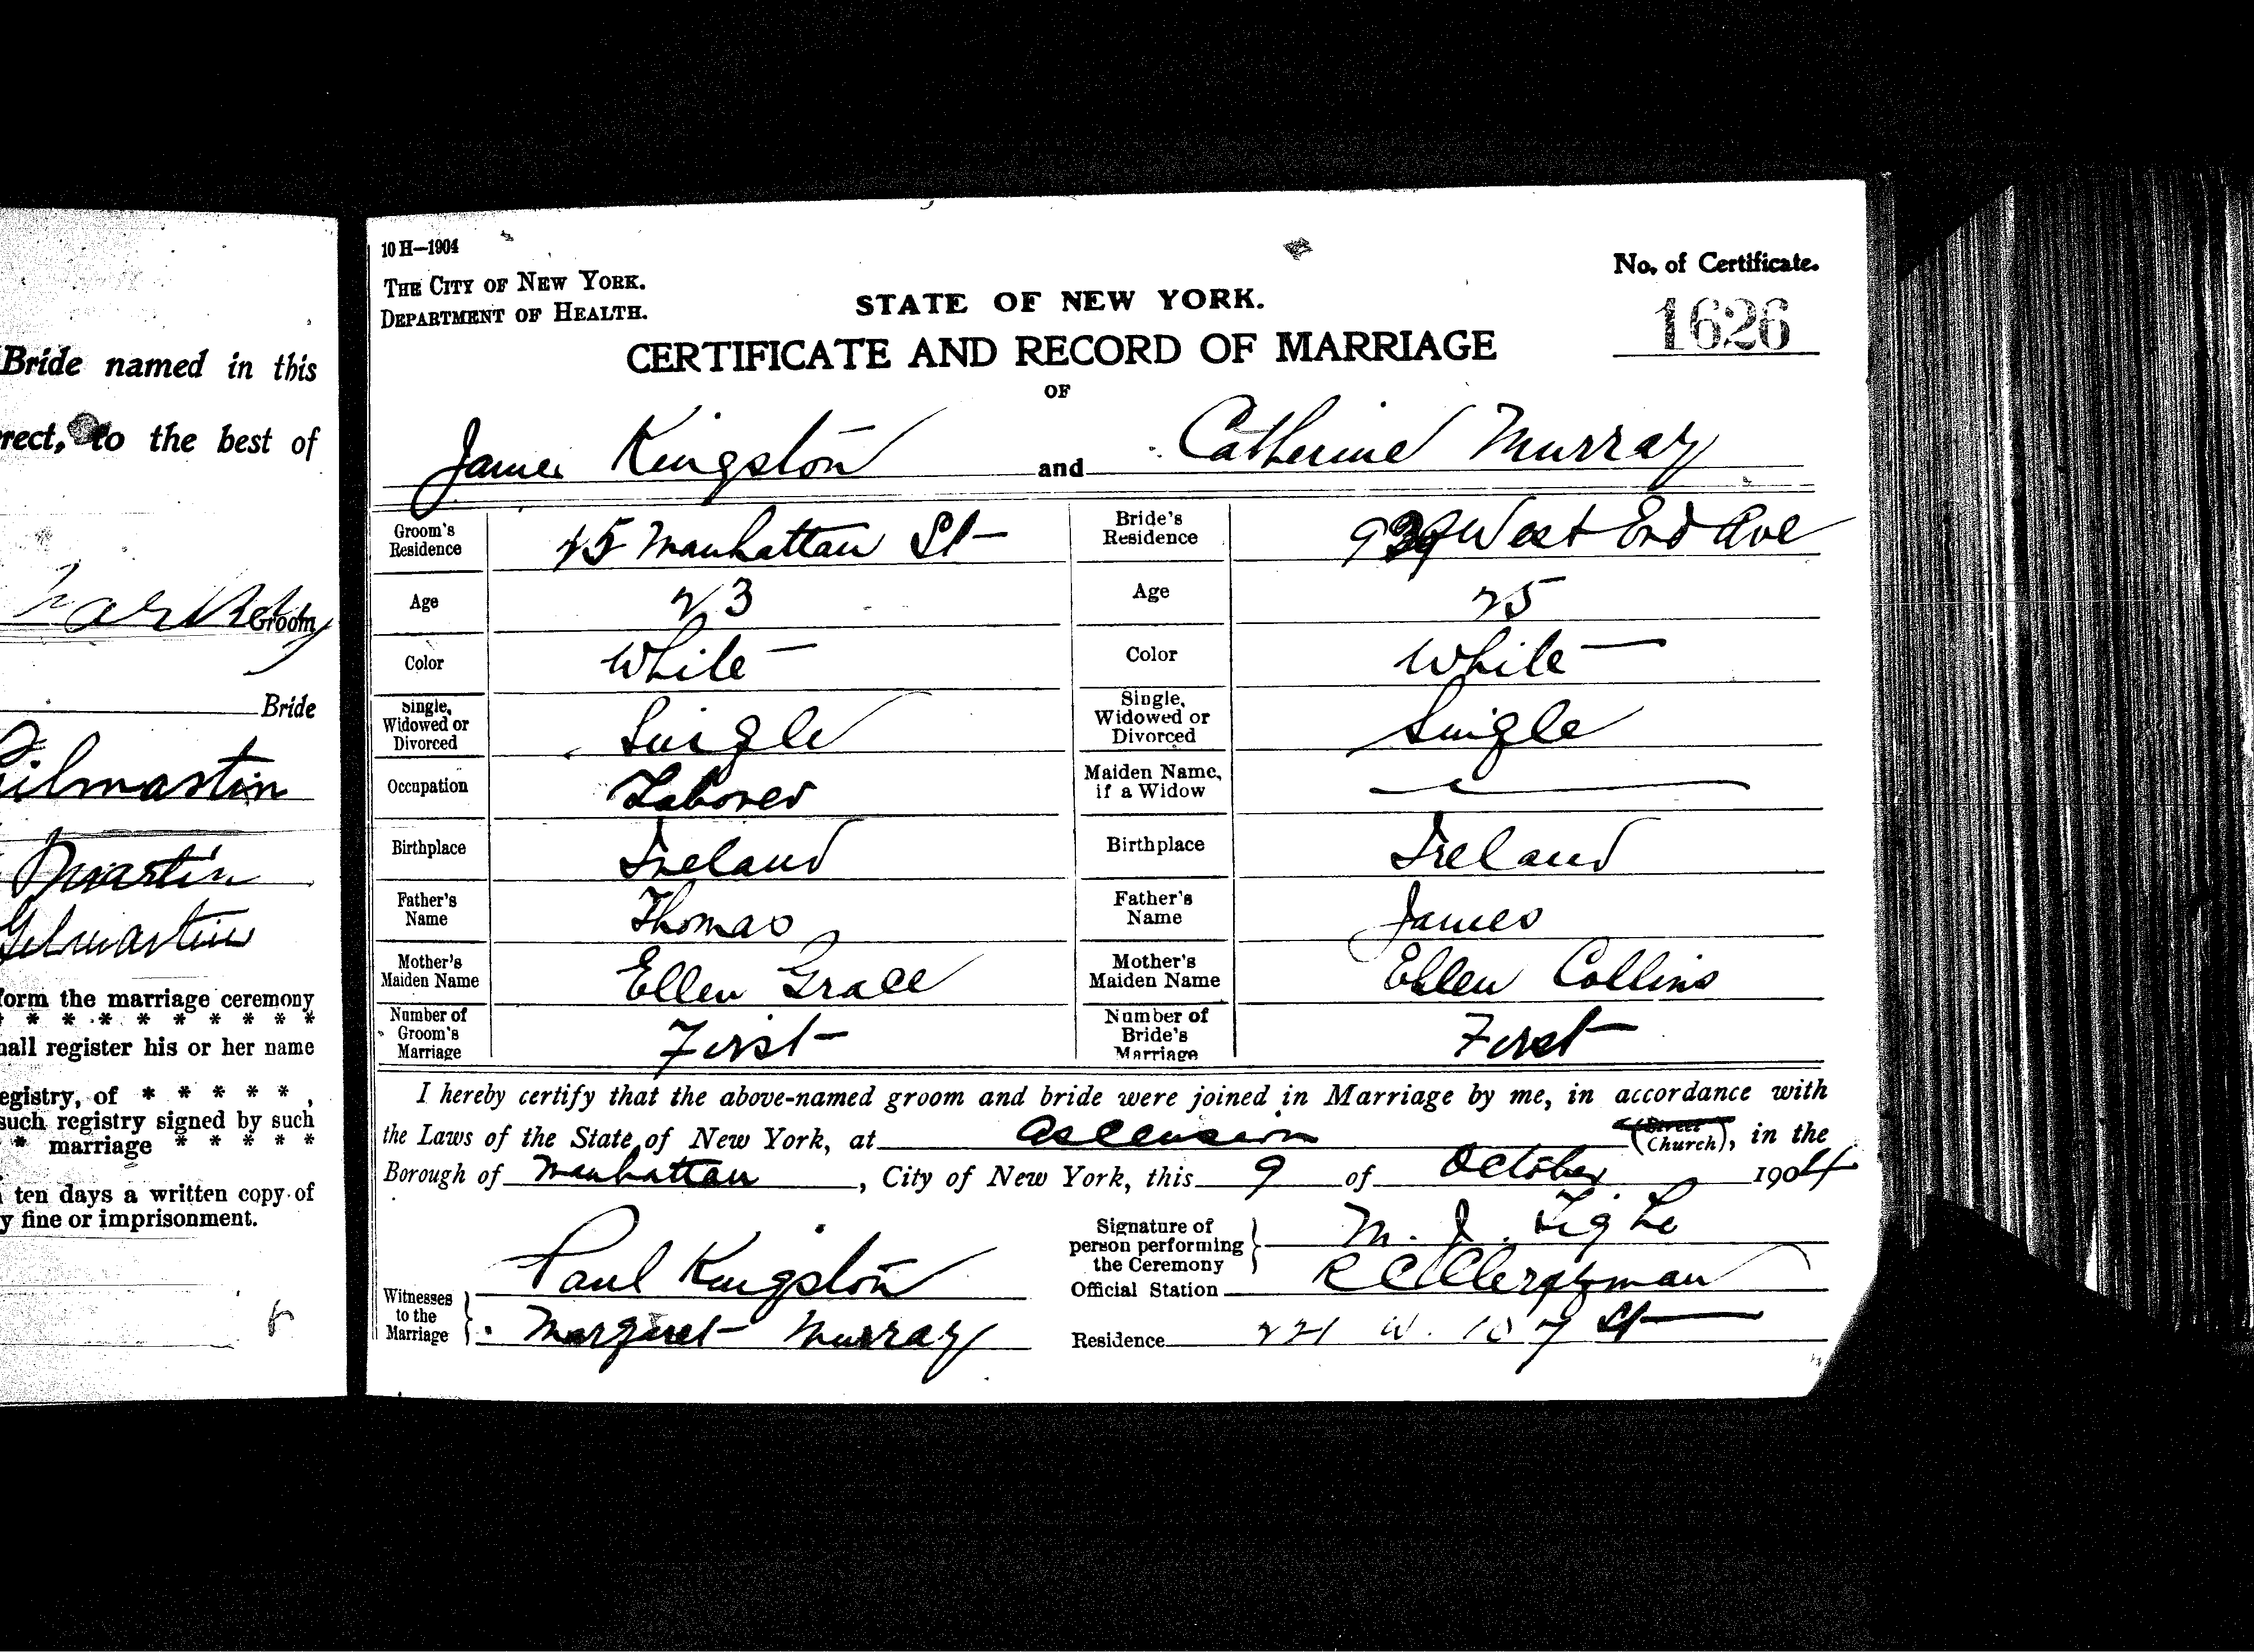 Bride named in this
rect, to the best of
Groom
Bride
Gilmartin
Martin
Gilmartin
form the marriage ceremony
* * * * * * * * *
hall register his or her name
egistry, of * * * * * ,
such registry signed by such
* marriage * * * * *
ten days a written copy of
y fine or imprisonment.
10 H—1904
THE CITY OF NEW YORK.
DEPARTMENT OF HEALTH.
No. of Certificate.
1626
STATE OF NEW YORK.
CERTIFICATE AND RECORD OF MARRIAGE
OF
James Kingston and Catherine Murray
Groom's Residence 45 Manhattan St
Bride's Residence West End Ave
Age 23
Age 25
Color White
Color White
Single, Widowed or Divorced Single
Single, Widowed or Divorced Single
Occupation Laborer
Maiden Name, if a Widow
Birthplace Ireland
Birthplace Ireland
Father's Name Thomas
Father's Name James
Mother's Maiden Name Ellen Grace
Mother's Maiden Name Ellen Collins
Number of Groom's Marriage First
Number of Bride's Marriage First
I hereby certify that the above-named groom and bride were joined in Marriage by me, in accordance with
the Laws of the State of New York, at Ascension (Street Church), in the
Borough of Manhattan, City of New York, this 9 of October 1904
Witnesses to the Marriage
Paul Kingston
Margaret Murray
Signature of person performing the Ceremony M. J. Tighe
Official Station R C Clergyman
Residence 221 W. 107 St